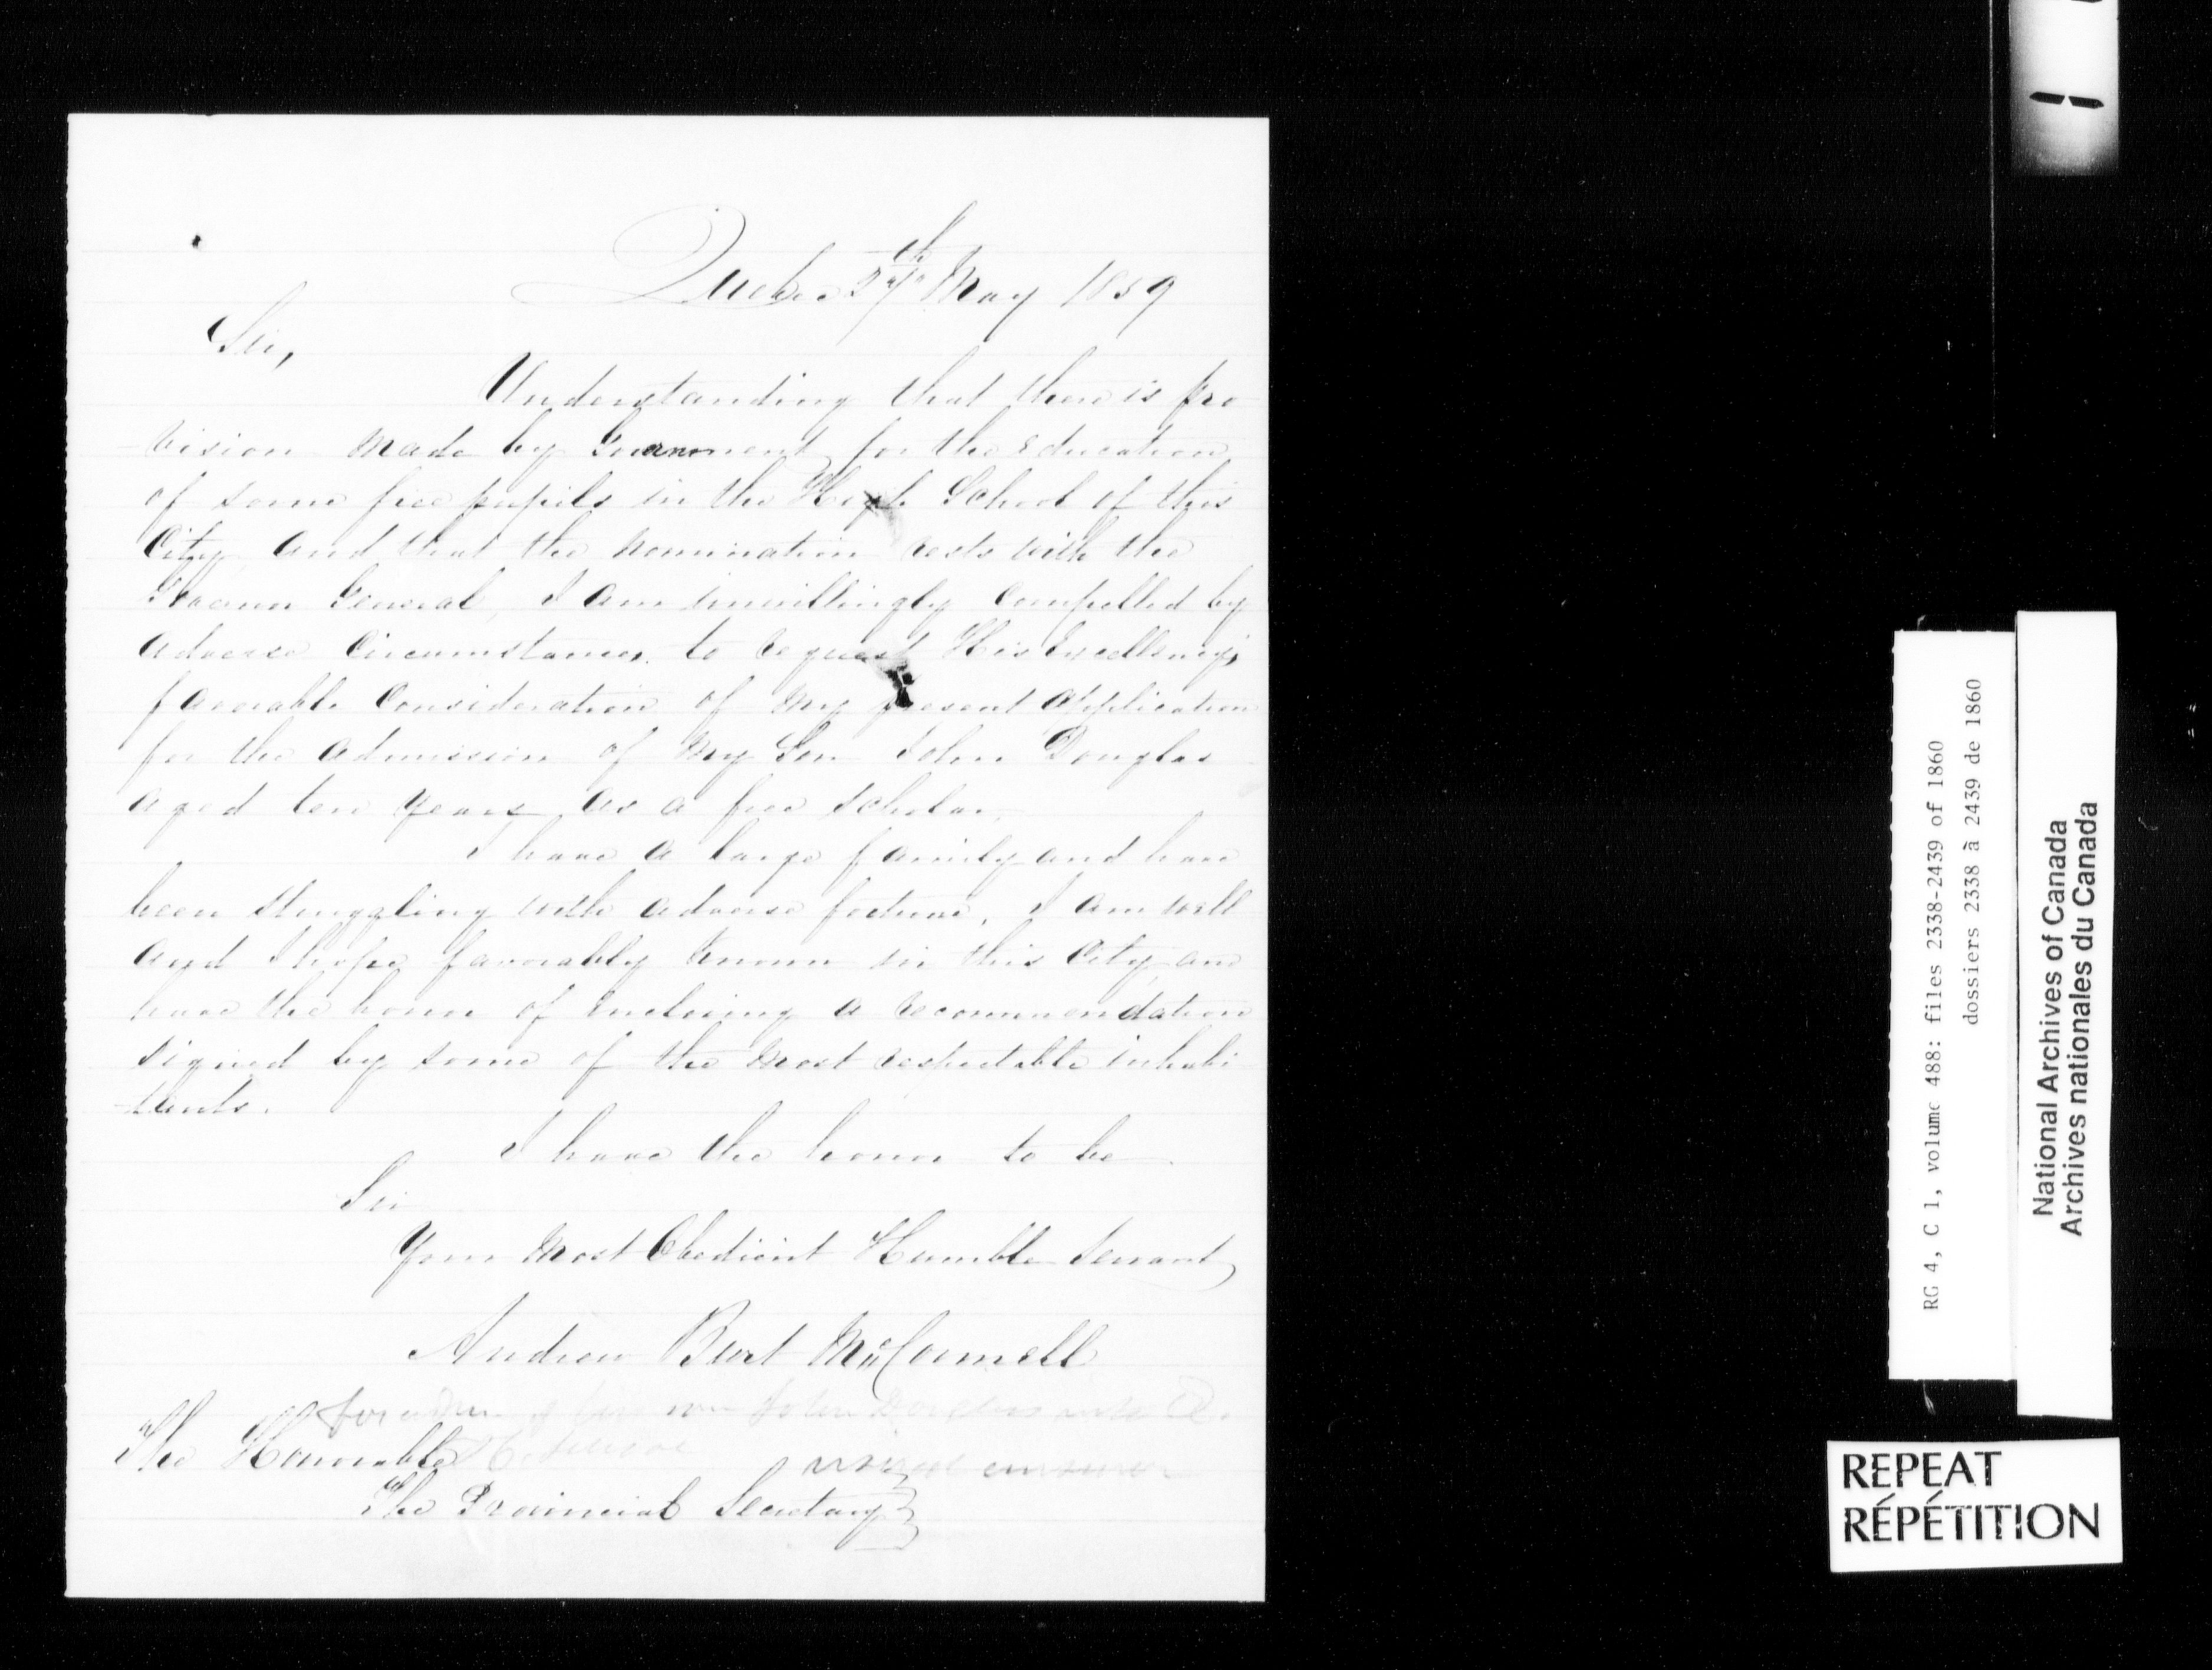 Quebec 27th May 1859
Sir,
Understanding that there is pro
-vision made by Government for the Education
of some free pupils in the High School of this
City, and that the nomination rests with the
Governor General, I am unwillingly compelled by
adverse Circumstances to request His Excellency's
favorable Consideration of my present application
for the admission of my Son John Douglas
aged ten years as a free scholar.
I have a large family and have
been struggling with adverse fortune. I am well
and I hope favorably known in this City, and
have the honor of enclosing a recommendation
signed by some of the most respectable inhabi
-tants.
I have the honor to be
Sir
Your Most Obedient Humble Servant
Andrew Burt McConnell
for adm of his son John Douglas into Q.
H. School
usual answer
The Honorable
The Provincial Secretary
RG 4, C 1, volume 488: files 2338-2439 of 1860
dossiers 2338 à 2439 de 1860
National Archives of Canada
Archives nationales du Canada
REPEAT
RÉPÉTITION